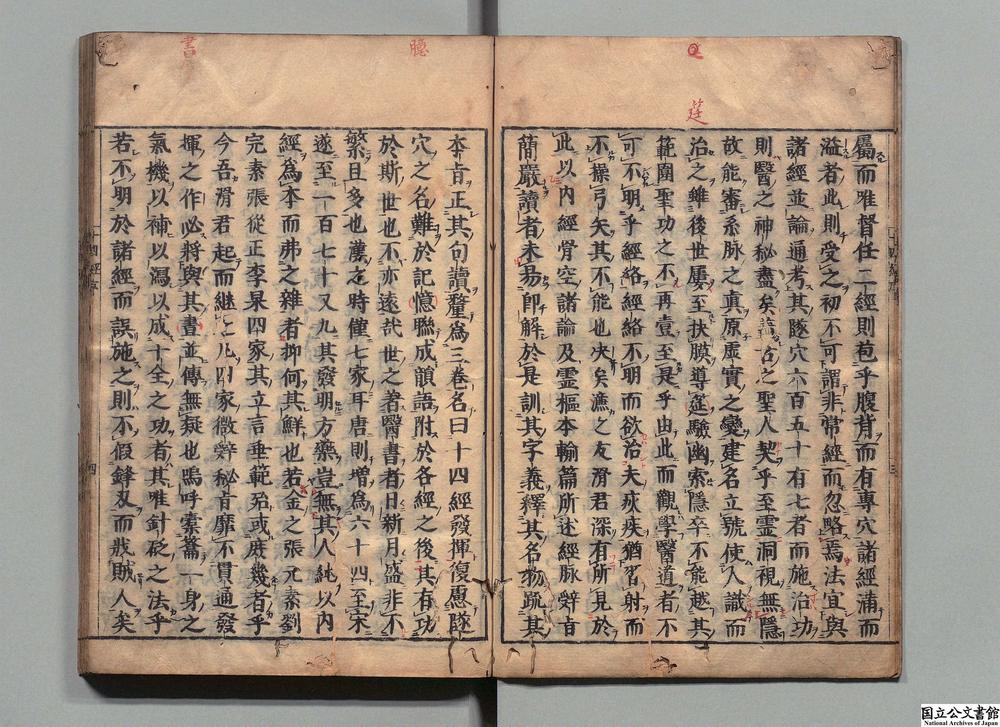 屬而唯督任二經則苞乎腹背而有專穴諸經滿而
溢者此則受之初不可謂非常經而忽略焉法宜與
諸經並論通考其隧穴六百五十有七者而施治功
則醫之神秘盡矣蓋古之聖人契乎至靈洞視無隱
故能審系脉之真原虛實之變建名立號使人識而
治之雖後世屢至抉膜導筳驗幽索隱卒不能越其
範圍聖功之不再壹至是乎由此而觀學醫道者不
可不明乎經絡經絡不明而欲治夫疢疾猶習射而
不操弓矢其不能也决矣濂之友滑君深有所見於
此以内經骨空諸論及霊樞本輸篇所述經脉辤旨
簡嚴讀者未易即解於是訓其字義釋其名物疏其
本旨正其句讀釐為三卷名曰十四經發揮復慮隧
穴之名難於記憶聯成韻語附於各經之後其有功
於斯世也不亦遠哉世之著醫書者日新月盛非不
繁且多也漢之時僅七家耳唐則增為六十四至宋
遂至一百七十又九其發明方藥豈無其人純以内
經為本而弗之雜者抑何其鮮也若金之張元素劉
完素張從正李杲四家其立言垂範殆或庶幾者乎
今吾滑君起而継之凡四家微辤秘旨靡不貫通發
揮之作必將與其書並傳無疑也嗚呼橐籥一身之
氣機以補以瀉以成十全之功者其唯針砭之法乎
若不明於諸經而誤施之則不假鋒刄而戕賊人矣
筳
臆
書
三
四
国立公文書館
National Archives of Japan